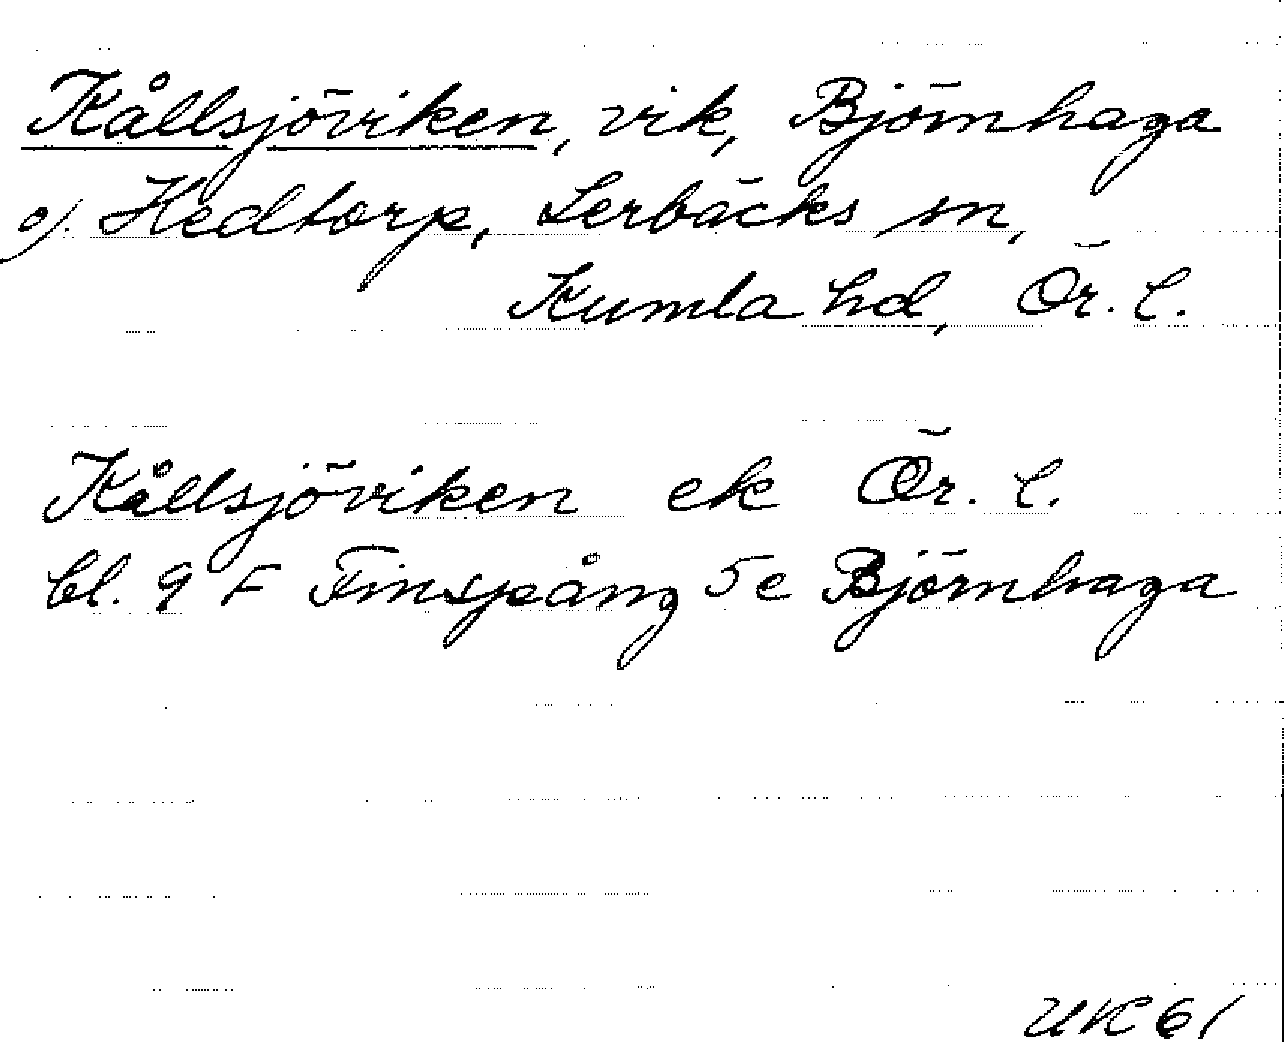 Kållsjöviken, vik, Björnhaga
o). Hedtorp, Lerbäcks sn,
Kumla hd, Ör. l.
Kållsjöviken ek Ör. l.
bl. 9 F Finspång 5e Björnhaga
UK 61